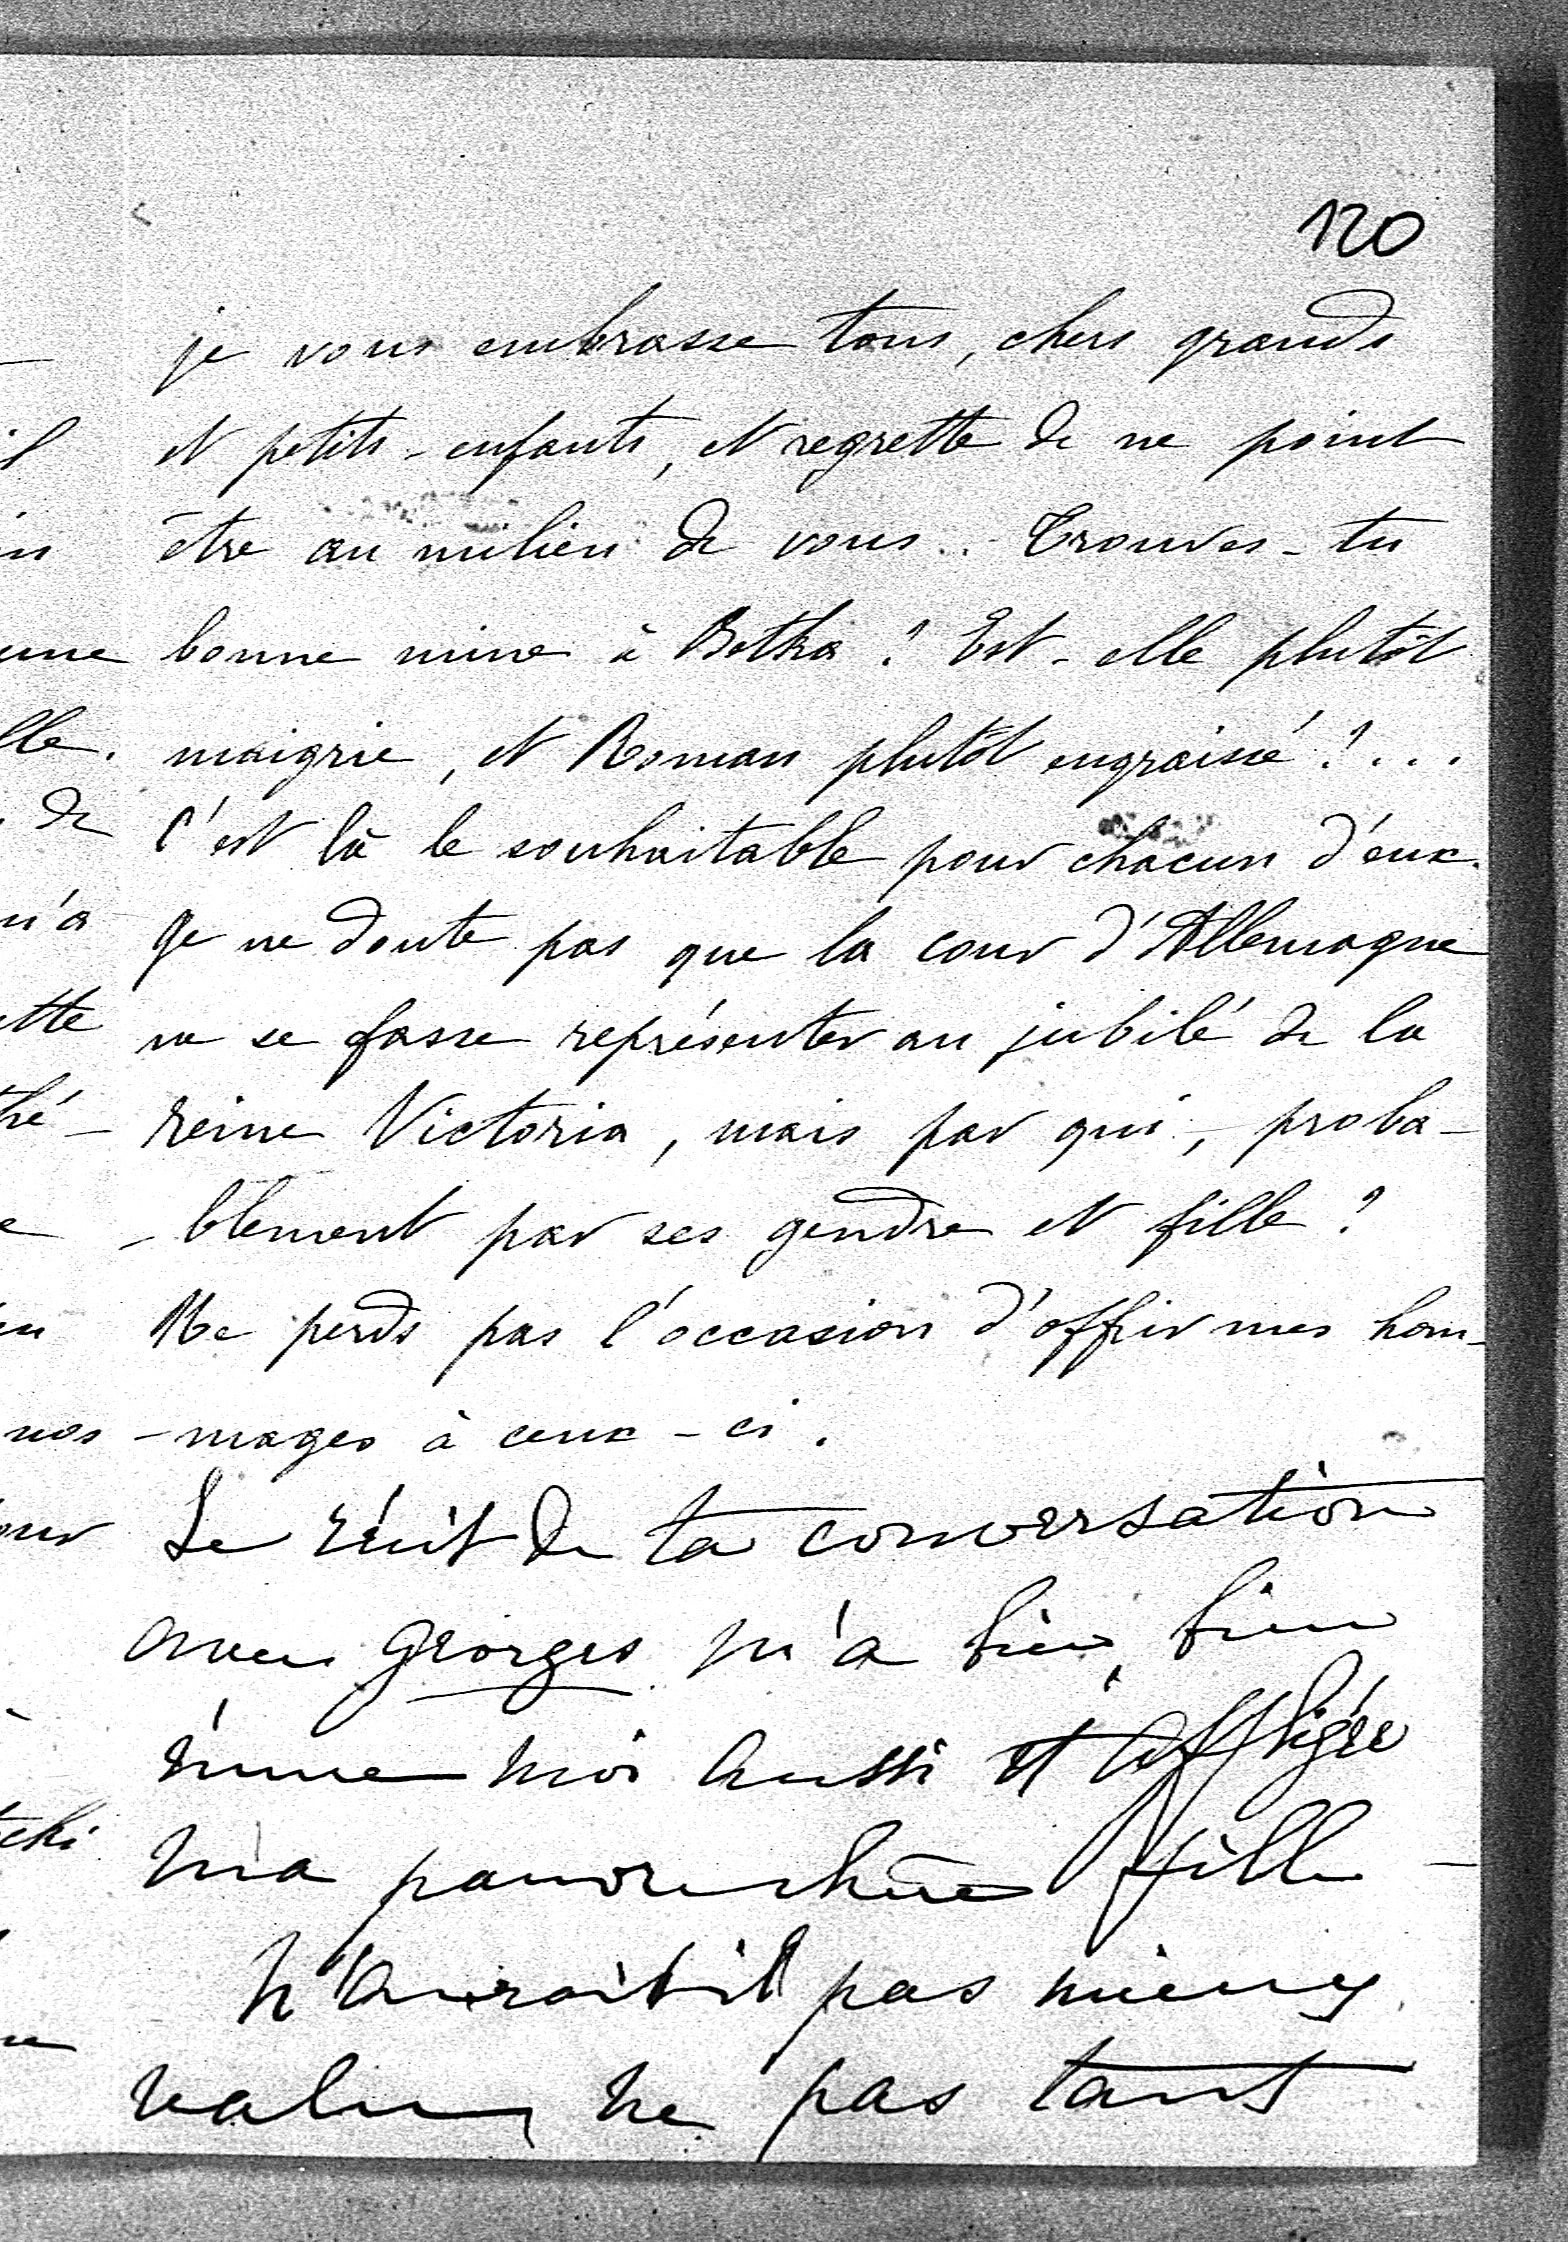 120
je vous embrasse tous, chers grands
et petits-enfants, et regrette de ne point
être au milieu de vous... Trouves-tu
bonne mine à Betka? Est-elle plutôt
maigrie, et Roman plutôt engraissé?...
C'est là le souhaitable pour chacun d'eux.
Je ne doute pas que la cour d'Allemagne
ne se fasse représenter au jubilé de la
reine Victoria, mais par qui, proba-
-blement par ses gendre et fille?
Ne perds pas l'occasion d'offrir mes hom-
-mages à ceux-ci.
Le récit de ta conversation
avec Georges m'a bien, bien
émue moi aussi et affligée
ma pauvre chère fille —
N'aurait il pas mieux
valu ne pas tant